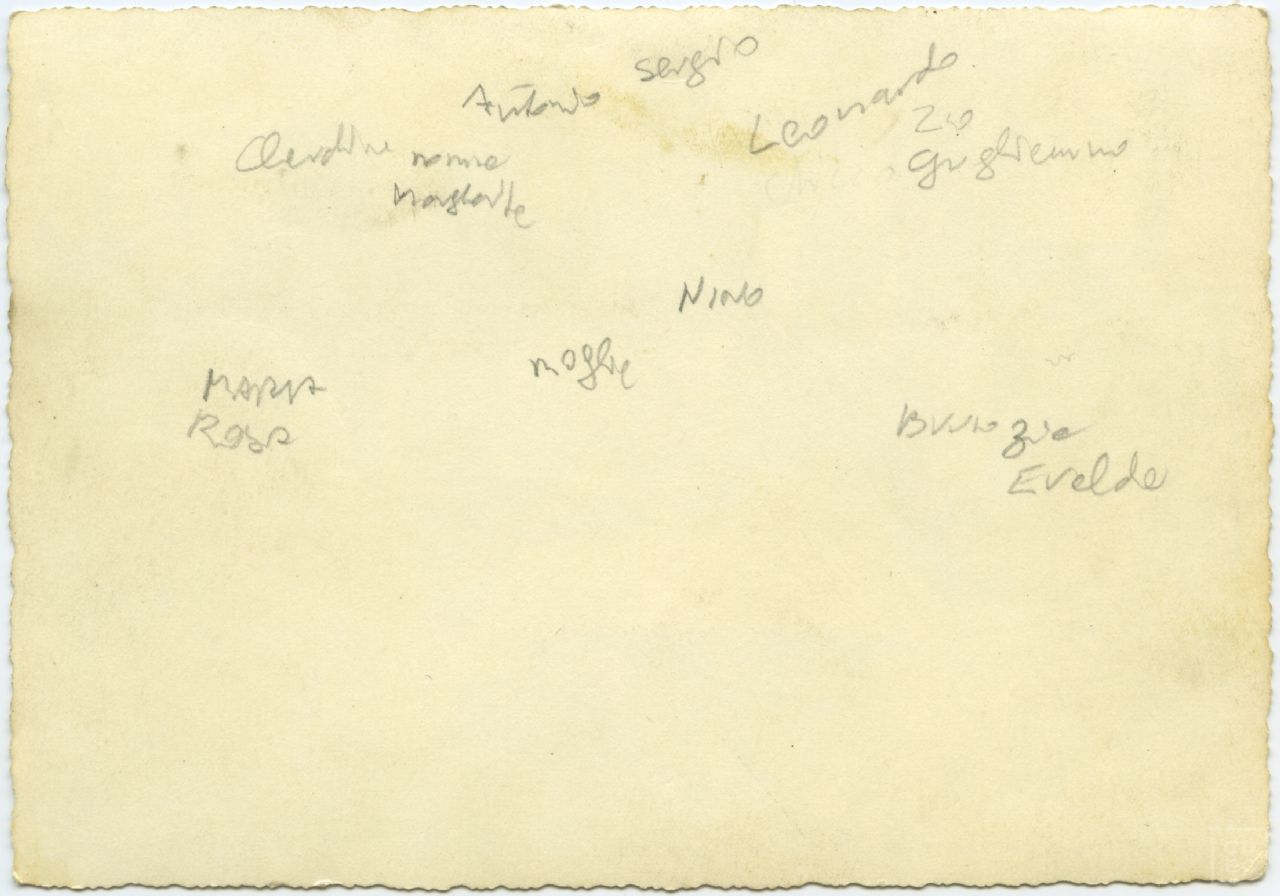 Sergio
Antonio
Leonardo
Zio
Guglielmo
nonna
Margherite
Nino
moglie
MARIA
ROSA
Bruno zia
Evelde